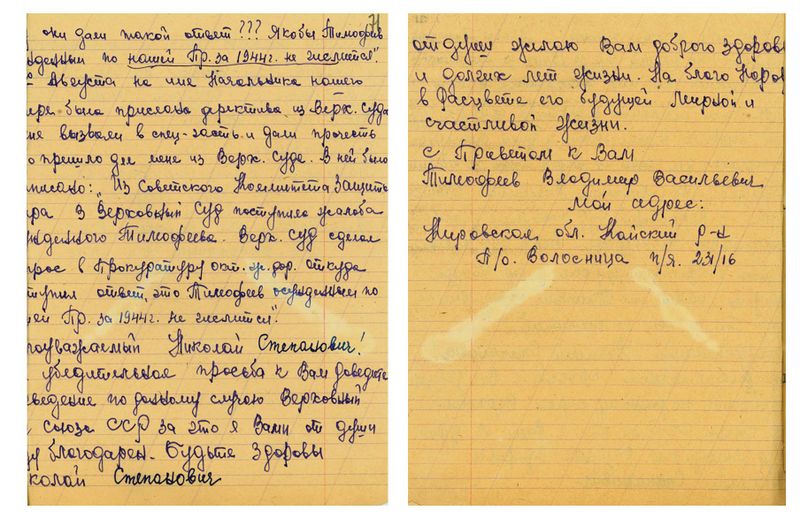 71
они дали такой ответ??? Якобы Тимофеев
по нашей Пр. за 1944г. не числится".
Августа на имя Начальника нашего
была прислана директива из Верх. Суда
вызвали в спец-часть и дали прочесть
пришло для меня из Верх. Суда. В ней было
"Из Советского Комитета Защиты
в Верховный Суд поступила жалоба
Тимофеева. Верх. Суд сделал
в Прокуратуру окт. ж. дор. откуда
ответ, что Тимофеев осужденным по
Пр. за 1944г. не числится".
Николай Степанович!
убедительная просьба к Вам доведите
по данному случаю Верховный
Союза ССР за это я Вами от души
благодарен. Будьте здоровы
Степанович
от души желаю Вам доброго
и долгих лет жизни. На благо
в Расцвете его будущей Мирной и
счастливой Жизни.
с Приветом к Вам
Тимофеев Владимир Васильевич
Мой адрес:
Кировская обл. Кайский р-н
П/о. Волосница п/я. 231/16